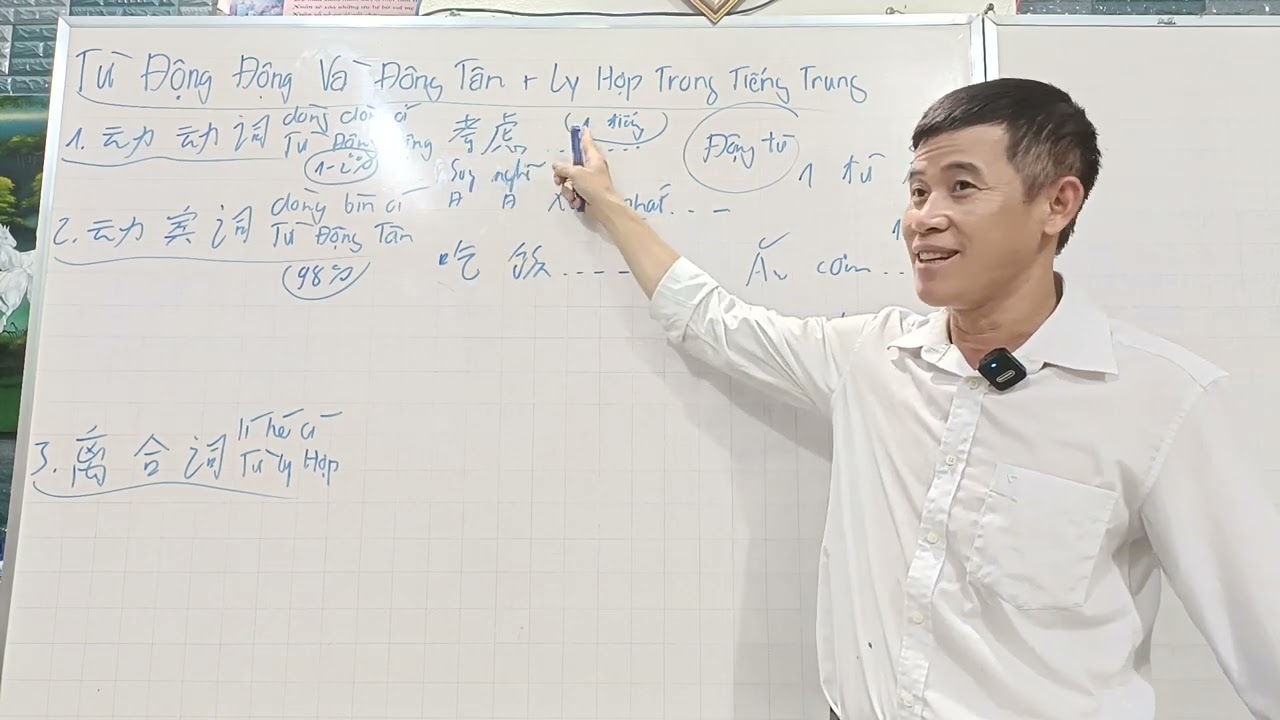 Từ Động Động Và Động Tân + Ly Hợp Trong Tiếng Trung
1. 动 动 词 dòng dòng cí 考虑 (1 tiếng) Động từ
Từ Động Động
(1-2%) Suy nghĩ 1 từ
A A
2. 动 宾 词 dòng bīn cí
Từ Động Tân
(98%) 吃 饭 ..... Ăn cơm ...
3. 离 合 词 lí hé cí
Từ Ly Hợp